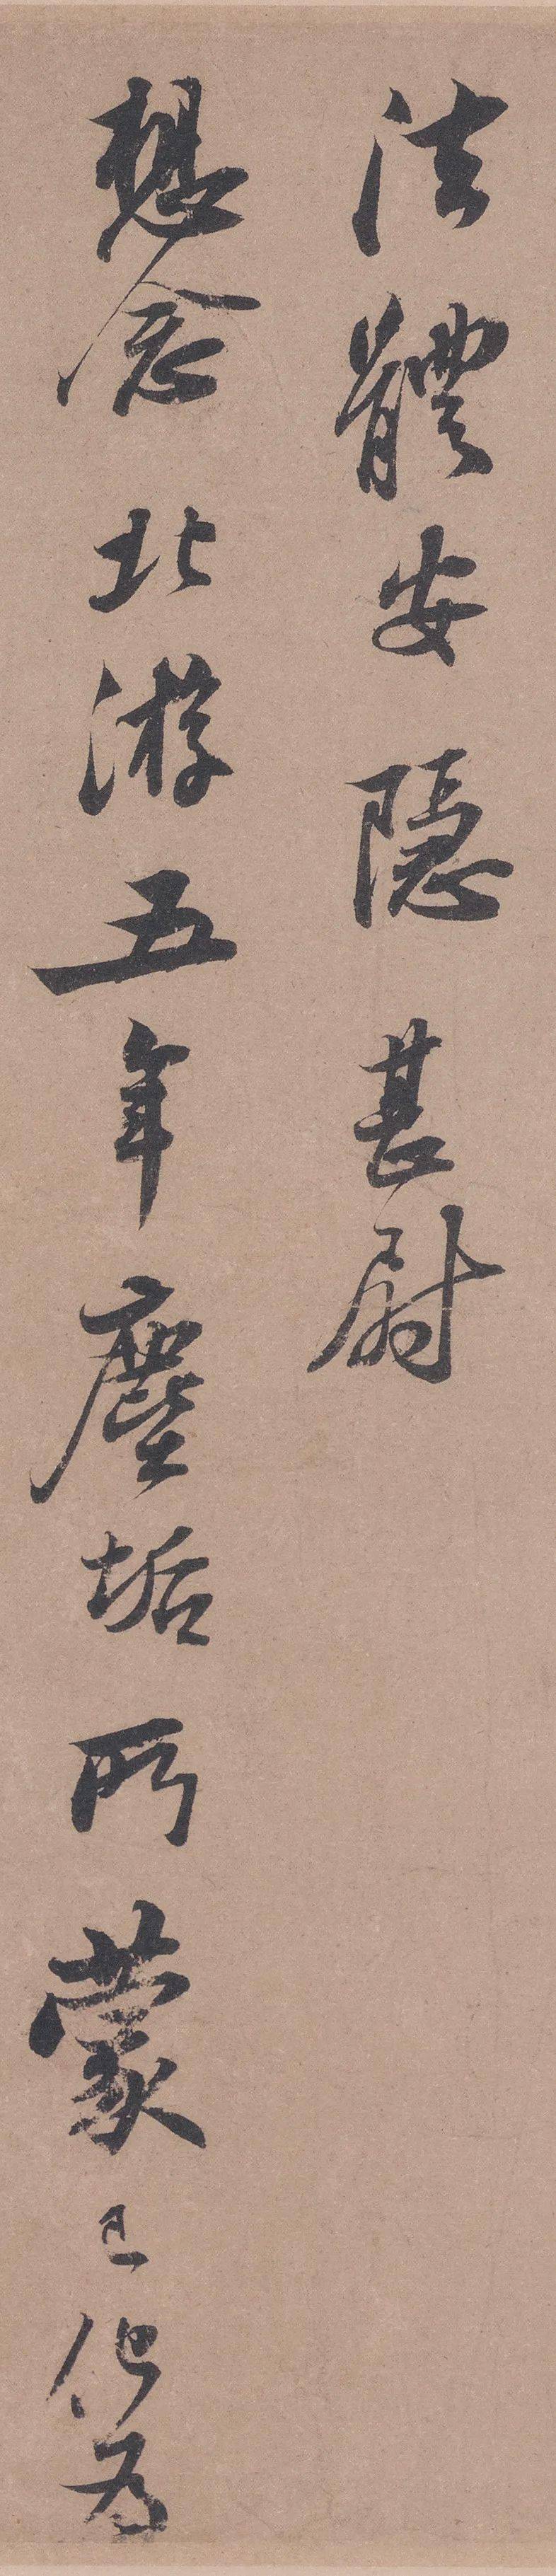 法體安隱甚尉
想念北游五年塵垢所蒙已化爲